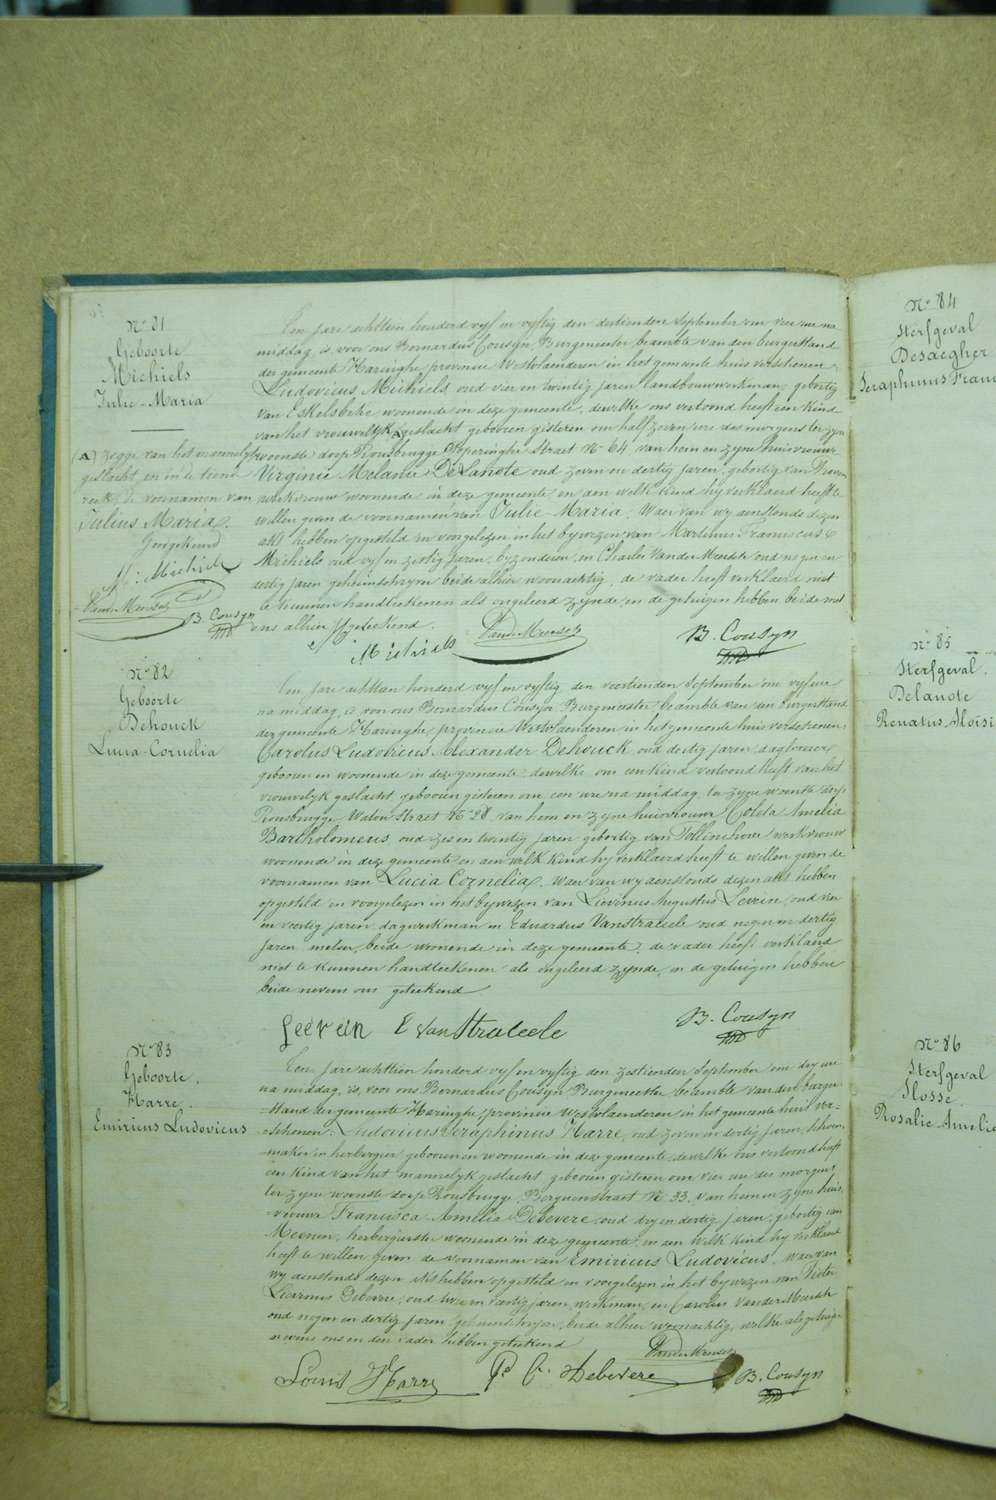 N° 81
Geboorte
Michiels
Julie-Maria
(A) zegge van het mannelyk
geslacht en in de
de voornamen van
Julius Maria.
Goedgekeurd
Michiels
Vander Meersch
B. Cousyn
Een jare achttien honderd vyf en vyftig den dertienden September om vier ure na
middag, is voor ons Bernardus Cousyn Burgemeester beambte van den burgerstand
der gemeente Haringhe, provincie Westvlaenderen in het gemeente huis verschenen
Ludovicus Michiels, oud vier en twintig jaren landbouwwerkman, geboortig
van Eskelsbeke woonende in deze gemeente, dewelke ons vertoond heeft een kind
van het vrouwelyk (A) geslacht geboren gisteren om half zeven ure des morgens ter zyne
woonste dorp Rousbrugge Poperinghe Straet N° 64 van hem en zyne huisvrouw
Virginie Melanie DeLanote oud zeven en dertig jaren, geboortig van
werkvrouw woonende in deze gemeente en aen welk kind hy verklaerd heeft te
willen geven de voornamen van Julie-Maria. Waer van wy aenstonds dezen
akt hebben opgesteld en voorgelezen in het bywezen van Martinus Franciscus
Michiels oud vyf en zestig jaren, byzonderen, en Charles Vander Meersch oud negen en
dertig jaren geheimschryver beide alhier woonachtig, de vader heeft verklaerd niet
te kunnen handteekenen als ongeleerd zynde en de getuigen hebben beide met
ons alhier geteekend.
Michiels Vander Meersch B. Cousyn
N° 82
Geboorte
Dehouck
Lucia-Cornelia
Een jare achttien honderd vyf en vyftig den veertienden September om vyf ure
na middag, is voor ons Bernardus Cousyn Burgemeester beambte van den burgerstand
der gemeente Haringhe, provincie Westvlaenderen in het gemeente huis verschenen
Carolus Ludovicus Alexander Dehouck, oud dertig jaren, daglooner
geboren en woonende in deze gemeente, dewelke ons een kind vertoond heeft van het
vrouwelyk geslacht, geboren gisteren om een ure na middag, ter zyne woonste dorp
Rousbrugge, Water Straet N° 28, van hem en zyne huisvrouw Coleta Amelia
Bartholomeus oud zes en twintig jaren geboortig van Pollinchove werkvrouw
woonende in deze gemeente en aen welk kind hy verklaerd heeft te willen geven de
voornamen van Lucia Cornelia. Waer van wy aenstonds dezen akt hebben
opgesteld en voorgelezen in het bywezen van Livinus Augustus Levein, oud vier
en veertig jaren dagwerkman en Eduardus Vanstraceele oud negen en dertig
jaren metser, beide woonende in deze gemeente, de vader heeft verklaerd
niet te kunnen handteekenen als ongeleerd zynde, en de getuigen hebben
beide nevens ons geteekend
Leevein E VanStraceele B. Cousyn
N° 83
Geboorte.
Harre.
Emiricus Ludovicus
Een jare achttien honderd vyf en vyftig den zestienden September om dry ure
na middag, is voor ons Bernardus Cousyn Burgemeester beambte van den burger-
-stand der gemeente Haringhe, provincie Westvlaenderen in het gemeente huis ver-
-schenen. Ludovicus Seraphinus Harre, oud zeven en dertig jaren, schoen-
-maker en herbergier geboren en woonende in deze gemeente, dewelke ons vertoond heeft
een kind van het mannelyk geslacht geboren gisteren om vier ure des morgens
ter zyne woonste dorp Rousbrugge, Berguenstraet N° 33, van hem en zyne huis-
-vrouw Francisca Amelia Debevere, oud dry en dertig jaren, geboortig van
Meenen, herbergierster woonende in deze gemeente, en aen welk kind hy verklaerd
heeft te willen geven de voornamen van Emiricus Ludovicus. Waer van
wy aenstonds dezen akt hebben opgesteld en voorgelezen in het bywezen van Pieter
Livinus Debevere, oud twee en veertig jaren, werkman, en Carolus Vander Meersch
oud negen en dertig jaren geheimschryver, beide alhier woonachtig, welke als getuigen
nevens ons en den vader hebben geteekend
Vander Meersch
Louis Harre P. L. Debevere B. Cousyn
N° 84
Sterfgeval
Desaegher
Seraphinus Fran
N° 85
Sterfgeval.
Delanote
Renatus Aloisi
N° 86
Sterfgeval
Hosse.
Rosalie-Amelie